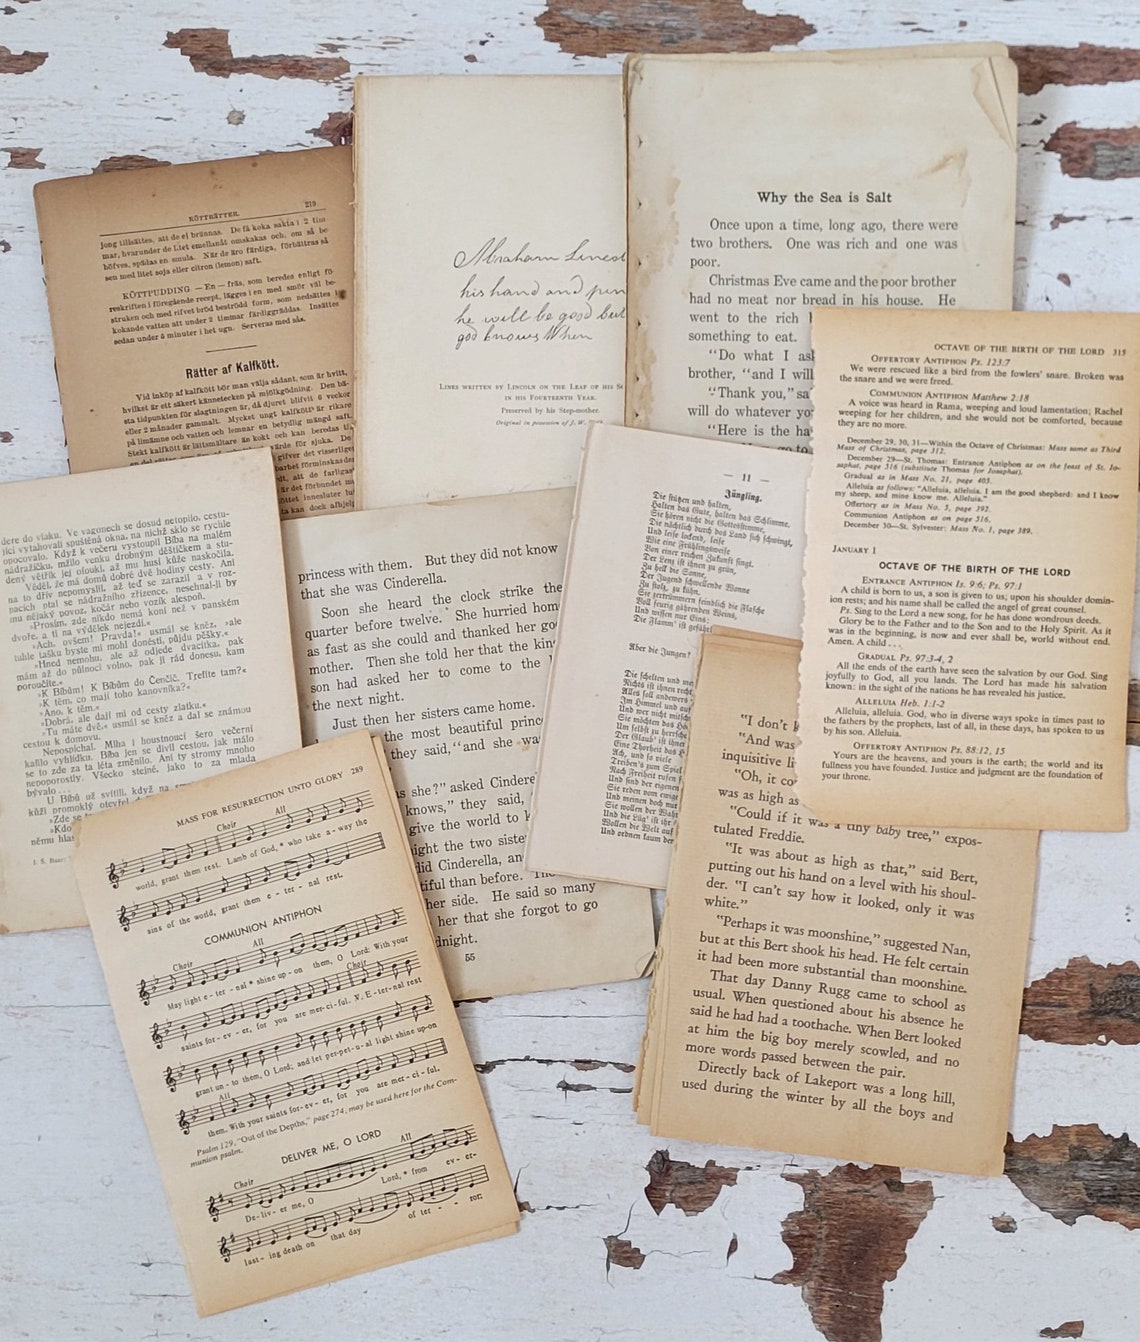 KÖTTRÄTTER. 219
jong tillsättes, att de ej brännas. De få koka sakta i 2 tim
mar, hvarunder de litet emellanåt omskakas och, om så be
höfves, spädas en smula. När de äro färdiga, förbättras så
sen med litet soja eller citron (lemon) saft.
KÖTTPUDDING. — En — fräs, som beredes enligt fö
reskriften i föregående recept, lägges i en med smör väl be-
struken och med rifvet bröd beströdd form, som nedsättes i
kokande vatten att under 2 timmar färdiggräddas. Insättes
sedan under 5 minuter i het ugn. Serveras med sås.
Rätter af Kalfkött.
Vid inköp af kalfkött bör man välja sådant, som är hvitt,
hvilket är ett säkert kännetecken på mjölkgödning. Den bä-
sta tidpunkten för slagtningen är, då djuret blifvit 6 veckor
eller 2 månader gammalt. Mycket ungt kalfkött är rikare
på limämne och vatten och lemnar en betydlig mängd saft.
Stekt kalfkött är lättsmältare än kokt och kan berodas
värde för sjuka. De
gifver det visserlige
barhet förminskas
att de farligas
är det förbundet
köttet innesluter
ta kan dock afhjelp
Abraham Lincol
his hand and pen
he will be good but
god knows When
LINES WRITTEN BY LINCOLN ON THE LEAF OF HIS
IN HIS FOURTEENTH YEAR.
Preserved by his Step-mother.
Original in possession of J. W.
Why the Sea is Salt
Once upon a time, long ago, there were
two brothers. One was rich and one was
poor.
Christmas Eve came and the poor brother
had no meat nor bread in his house. He
went to the rich
something to eat.
"Do what I as
brother, "and I will
"Thank you," sa
will do whatever yo
"Here is the ha
go to
OCTAVE OF THE BIRTH OF THE LORD 315
OFFERTORY ANTIPHON Ps. 123:7
We were rescued like a bird from the fowlers' snare. Broken was
the snare and we were freed.
COMMUNION ANTIPHON Matthew 2:18
A voice was heard in Rama, weeping and loud lamentation; Rachel
weeping for her children, and she would not be comforted, because
they are no more.
December 29, 30, 31—Within the Octave of Christmas: Mass same as Third
Mass of Christmas, page 312.
December 29—St. Thomas: Entrance Antiphon as on the feast of St. Jo-
saphat, page 516 (substitute Thomas for Josaphat).
Gradual as in Mass No. 21, page 403.
Alleluia as follows: "Alleluia, alleluia. I am the good shepherd: and I know
my sheep, and mine know me. Alleluia."
Offertory as in Mass No. 5, page 392.
Communion Antiphon as on page 516.
December 30—St. Sylvester: Mass No. 1, page 389.
JANUARY 1
OCTAVE OF THE BIRTH OF THE LORD
ENTRANCE ANTIPHON Is. 9:6; Ps. 97:1
A child is born to us, a son is given to us; upon his shoulder domin-
ion rests; and his name shall be called the angel of great counsel.
Ps. Sing to the Lord a new song, for he has done wondrous deeds.
Glory be to the Father and to the Son and to the Holy Spirit. As it
was in the beginning, is now and ever shall be, world without end.
Amen. A child . . .
GRADUAL Ps. 97:3-4, 2
All the ends of the earth have seen the salvation by our God. Sing
joyfully to God, all you lands. The Lord has made his salvation
known: in the sight of the nations he has revealed his justice.
ALLELUIA Heb. 1:1-2
Alleluia, alleluia. God, who in diverse ways spoke in times past to
the fathers by the prophets, last of all, in these days, has spoken to us
by his son. Alleluia.
OFFERTORY ANTIPHON Ps. 88:12, 15
Yours are the heavens, and yours is the earth; the world and its
fullness you have founded. Justice and judgment are the foundation of
your throne.
dere do vlaku. Ve vagonech se dosud netopilo, cestu-
jící vytahovali spouštěná okna, na nichž sklo se rychle
opocovalo. Když k večeru vystoupil Bíba na malém
nádražíčku, mžilo venku drobným deštíčkem a stu-
dený větřík jej ofoukl, až mu husí kůže naskočila.
Věděl, že má domů dobré dvě hodiny cesty. Ani
na to dřív nepomyslil, až teď se zarazil a v roz-
pacích ptal se nádražního zřízence, neselhnal-li by
mu nějaký povoz, kočár nebo vozík alespoň.
»Prosím, zde nikdo nemá koní než v panském
dvoře, a ti na výdělek nejezdí.«
»Ach, ovšem! Pravda!« usmál se kněz, »ale
tuhle tašku byste mi mohl donésti, půjdu pěšky.«
»Hned nemohu, ale až odjede dvacítka, pak
mám až do půlnoci volno, pak ji rád donesu, kam
poroučíte.«
»K Bíbům! K Bíbům do Čenčic. Trefíte tam?«
»K těm, co mají toho kanovníka?«
»Ano, k těm.«
»Dobrá, ale dají mi od cesty zlatku.«
»Tu máte dvě.« usmál se kněz a dal se známou
cestou k domovu.
Nepospíchal. Mlha i houstnoucí šero večerní
kalilo vyhlídku. Bíba jen se divil cestou, jak málo
se to zde za ta léta změnilo. Ani ty stromy mnoho
nepoporostly. Všecko stejné, jako to za mlada
bývalo...
U Bíbů už svítili, když na
kůži promoklý otevřel d
»Zde se
»Kdo
němu hlas
princess with them. But they did not know
that she was Cinderella.
Soon she heard the clock strike the
quarter before twelve. She hurried hom
as fast as she could and thanked her go
mother. Then she told her that the kin
son had asked her to come to the
the next night.
Just then her sisters came home.
the most beautiful princ
they said, "and she wa
as she?" asked Cindere
knows," they said,
give the world to k
ight the two siste
did Cinderella, an
tiful than before. The
her side. He said so many
her that she forgot to go
dnight.
55
— 11 —
Jüngling.
Die stützen und halten,
Halten das Gute, halten das Schlimme.
Sie hören nicht die Gottesstimme,
Die nächtlich durch das Land sich schwingt,
Und leise lockend, leise
Wie eine Frühlingsweise
Von einer reichen Zukunft singt.
Der Lenz ist ihnen zu grün,
Zu hell die Sonne,
Der Jugend schwellende Wonne
Zu stolz, zu kühn.
Sie zertrümmern feindlich die Flasche
Voll feurig gährenden Weins,
Und wissen nur Eins:
Die Flamm' ist gefähr
Aber die Jungen?
Die schelten und
Nichts ist ihnen recht
Alles soll anders
Im Himmel und auf
Und wer nicht
Sie möchten das
Um selbst zu
Der Glaub' ist ihner
Eine Thorheit das
Ach, und so viele
Treiben's zum Spiel
Nach Freiheit rufen
Und sind der eigenen
Sie reden vom ewige
Und meinen doch nur
Sie wollen der Wahr
Und die Lüg' ist ihr
Wollen die Welt auf
Und ordnen kaum der
"I don't k
"And was
inquisitive li
"Oh, it co
was as high as
"Could if it was a tiny baby tree," expos-
tulated Freddie.
"It was about as high as that," said Bert,
putting out his hand on a level with his shoul-
der. "I can't say how it looked, only it was
white."
"Perhaps it was moonshine," suggested Nan,
but at this Bert shook his head. He felt certain
it had been more substantial than moonshine.
That day Danny Rugg came to school as
usual. When questioned about his absence he
said he had had a toothache. When Bert looked
at him the big boy merely scowled, and no
more words passed between the pair.
Directly back of Lakeport was a long hill,
used during the winter by all the boys and
MASS FOR RESURRECTION UNTO GLORY 289
Choir All
world, grant them rest. Lamb of God, * who take a-way the
sins of the world, grant them e - ter - nal rest.
COMMUNION ANTIPHON
Choir All
May light e - ter - nal * shine up - on them, O Lord: With your
Choir
saints for-ev-er, for you are mer-ci-ful. V. E-ter-nal rest
grant un-to them, O Lord; and let per-pet-u-al light shine up-on
All
them. With your saints for-ev-er, for you are mer-ci-ful.
Psalm 129, "Out of the Depths," page 274, may be used here for the Com-
munion psalm.
DELIVER ME, O LORD
Choir All
De-liv-er me, O Lord, * from ev-er-
last-ing death on that day of ter - - ror: